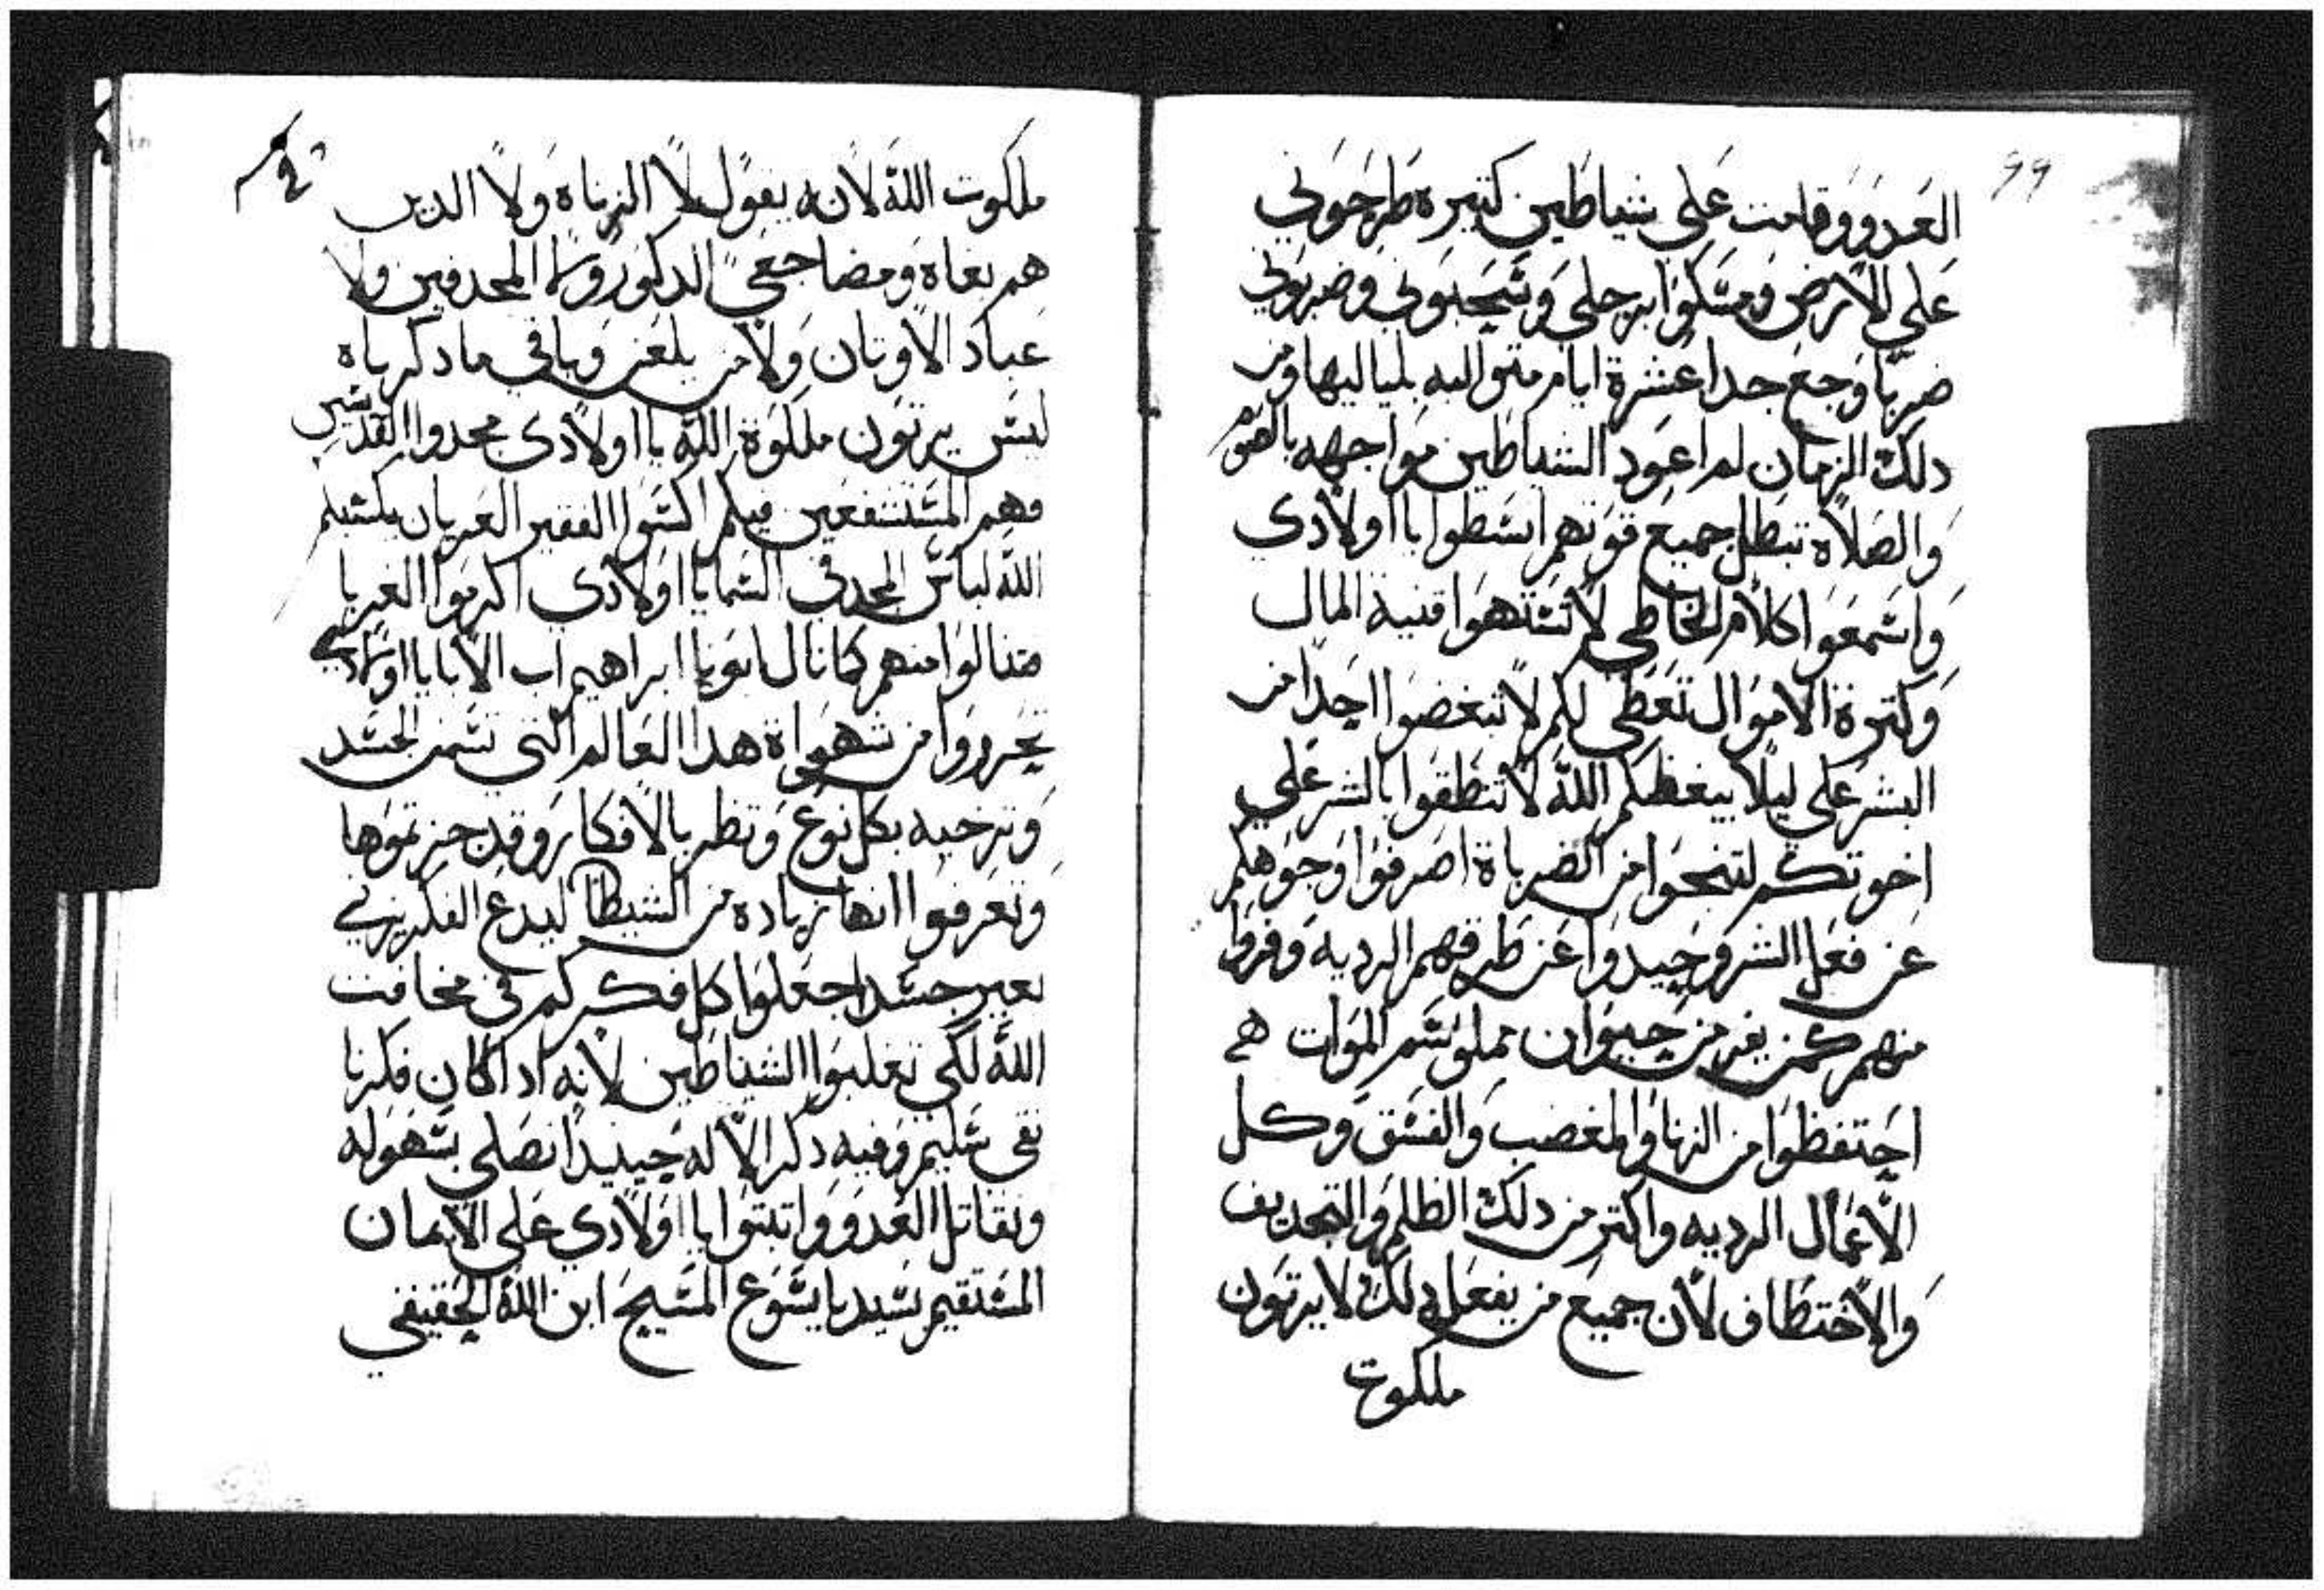 99
العدو وقامت على شياطين كتيره طرحوني
على الأرض ومسكوا برجلي وسحبوني وضربوني
ضربًا وجع جدا عشرة ايام متواليه بلياليها ومن
دلك الزمان لم اعود الشياطين مواجهه بالصوم
والصلاه تبطل جميع قوتهم انشطوا يا اولادى
واسمعوا كلام الخاطى لا تشتهوا قنية المال
وكترة الاموال تعطى لكم لا تبغضوا احدًا من
البشر على ليلا يبغظكم الله لا تنطقوا بالشر على
اخوتكم لتنجوا من الضرباة اصرفوا وجوهكم
عن فعل الشر وحيدوا عن طرقهم الرديه وفروا
منهم كمن يفر من حيوان مملوا سم الموات
احتفظوا من الزنا والغضب والفسق وكل
الأعمال الرديه واكتر من دلك الظلم والتجديف
والأختطاف لأن جميع من يفعل دلك لا يرتون
ملكوت
ملكوت الله لانه يقول لا الزناه ولا الدين
هم بغاه ومضاجعي الدكور ولا المجدفين ولا
عباد الأوتان ولا من يلعن وباقي ما دكرناه
ليس يرتون ملكوة الله يا اولادى مجدوا القديسين
فهم المستشفعين فيكم اكسوا الفقير العريان يكسيكم
الله لباس المجد في السما يا اولادى اكرموا الغربا
فتنالوا منهم كما نال ابونا ابراهيم اب الأبا يا اولادي
تحرروا من شهواة هدا العالم التي تسمن الجسد
وترخيه بكل نوع وتظر بالأفكار وقد حزتموها
وتعرفوا انها زياده من الشيطان ليدع الفكر يزني
بغير جسد اجعلوا كل فكركم في مخافت
الله لكي تغلبوا الشياطين لانه ادا كان فكرنا
نقى سليم وفيه دكر الأله حينيدًا نصلى بسهوله
ونقاتل العدو واتبتوا يا اولادي على الأيمان
المستقيم بسيدنا يسوع المسيح ابن الله الحقيقي